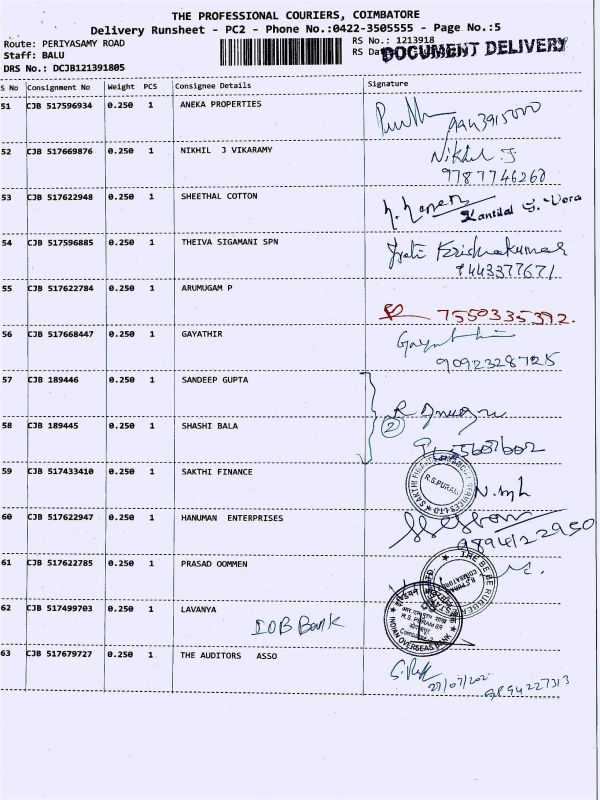 THE PROFESSIONAL COURIERS, COIMBATORE
Delivery Runsheet - PC2 - Phone No.:0422-3505555 - Page No.:5
Route: PERIYASAMY ROAD
RS No.: 1213918
Staff: BALU
RS Da
DOCUMENT DELIVERY
DRS No.: DCJB121391805
S No Consignment No Weight PCS Consignee Details Signature
51 CJB 517596934 0.250 1 ANEKA PROPERTIES
9443915000
52 CJB 517669876 0.250 1 NIKHIL J VIKARAMY Nikhil J
9787746260
53 CJB 517622948 0.250 1 SHEETHAL COTTON
Kantilal G. Vora
54 CJB 517596885 0.250 1 THEIVA SIGAMANI SPN Jyoti Krishnakumar
9443377671
55 CJB 517622784 0.250 1 ARUMUGAM P
7550335392.
56 CJB 517668447 0.250 1 GAYATHIR
9092328725
57 CJB 189446 0.250 1 SANDEEP GUPTA
58 CJB 189445 0.250 1 SHASHI BALA 2
59 CJB 517433410 0.250 1 SAKTHI FINANCE
SAKTHI FINANCE SERVICES LTD
R.S.PURAM
60 CJB 517622947 0.250 1 HANUMAN ENTERPRISES
9894122950
61 CJB 517622785 0.250 1 PRASAD OOMMEN
62 CJB 517499703 0.250 1 LAVANYA
IOB Bank
R.S. PURAM BR
INDIAN OVERSEAS BANK
63 CJB 517679727 0.250 1 THE AUDITORS ASSO
9894227313